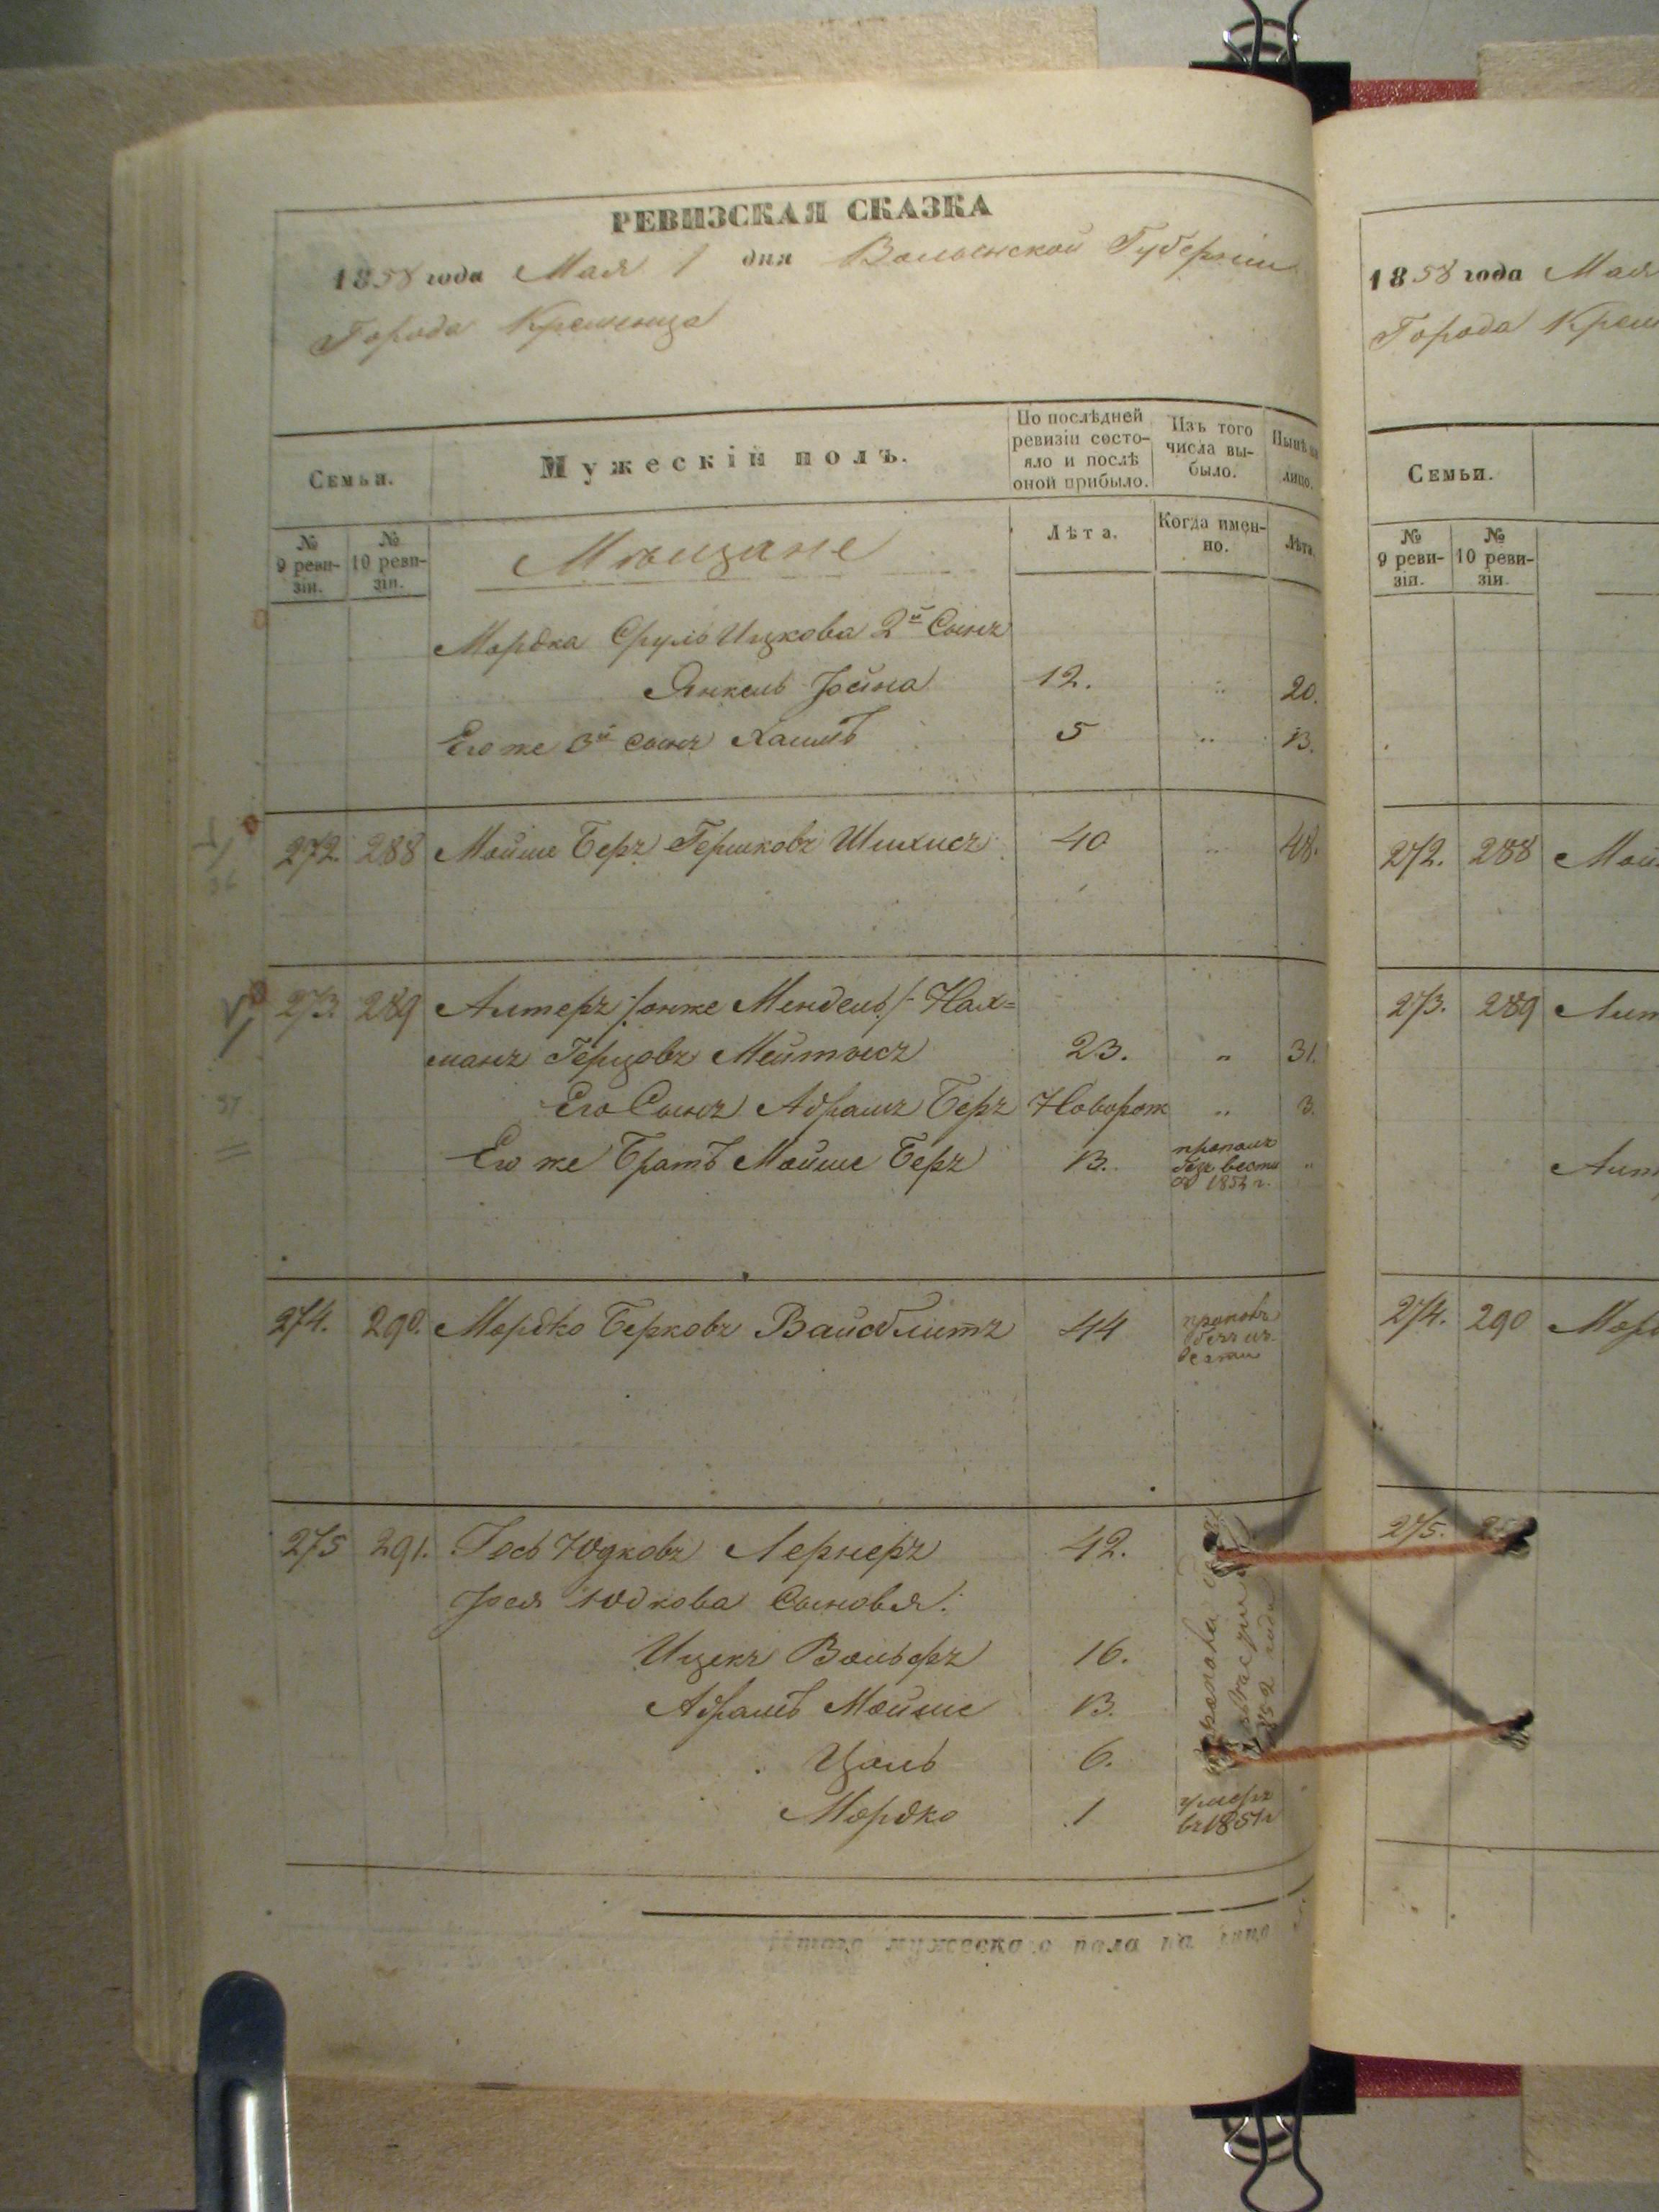 РЕВИЗСКАЯ СКАЗКА
1858 года Мая 1 дня Волынской Губерніи
Города Кременца
Семьи.
Мужескій полъ.
По послѣдней ревизіи состо-
яло и послѣ оной прибыло.
Изъ того числа вы-
было.
Нынѣ на лицо.
№ 9 реви-
зіи.
№ 10 реви-
зіи.
Мѣщане
Лѣта.
Когда имен-
но.
Лѣта.
Мордка Сруль Ицкова 2й Сынъ
Янкель 12. 20.
Его же 3й сынъ Хаимъ 5 13.
272. 288 Мойше Беръ Гершковъ 40 48.
273. 289 Алтеръ /онже Мендель/ Нах=
манъ Герцовъ 23. 31.
Его Сынъ Абрамъ Беръ Новорож 3.
Его же Братъ Мойше Беръ 13. пропалъ
безъ вести
274. 290. Мордко Берковъ Вайсблитъ 44
275 291. Іось Юдковъ Лернеръ 42.
Іося Юдкова Сыновья:
Ицекъ Вольфъ 16.
Абрамъ Мойше 13.
6.
Мордко 1 умеръ
въ 1851 г
Итого мужескаго пола на лицо
1858 года Мая
Города Крем
Семьи.
№ 9 реви-
зіи.
№ 10 реви-
зіи.
272. 288 Мой
273. 289 Алт
Алт
274. 290 Морд
275.